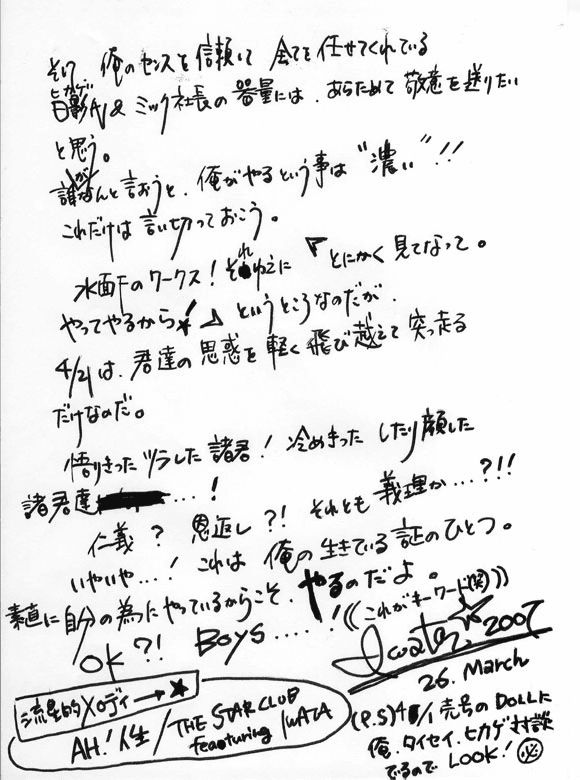 そして 俺のセンスを信頼して 全てを任せてくれている
ヒカゲ
日影 & ミック社長の器量には、あらためて敬意を送りたい
と思う。
誰がなんと言おうと、俺がやるという事は“濃い”!!
これだけは言い切っておこう。
水面下のワークス! それゆえに 「とにかく見てなって。
やってやるから!」というところなのだが、
4/21は、君達の思惑を軽く飛び越えて突っ走る
だけなのだ。
悟りきったツラした諸君! 冷めきった したり顔した
諸君達…!
仁義? 恩返し?! それとも 義理か…?!!
いやいや…! これは 俺の生きている証のひとつ。
素直に自分の為にやっているからこそ、やるのだよ。
OK?! Boys....! ((これがキーワード(笑)))
Iwata 2007
26. March
流星的メロディ→★
AH!人生/THE STAR CLUB featuring IWATA
(P.S) 4/1売号のDOLLに
俺、タイセイ、ヒカゲ対談
でるので LOOK! ㊙